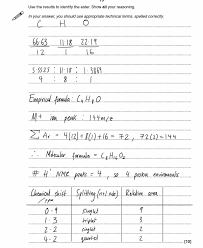 Use the results to identify the ester. Show all your reasoning.
In your answer, you should use appropriate technical terms, spelled correctly.
C H O
66.63 11.18 22.19
12 1 16
5.5525 : 11.18 : 1.3869
4 : 8 : 1
Empirical formula: C4H8O
M+ ion peak: 144 m/z
∑ Ar = 4(12) + 8(1) + 16 = 72, 72(2) = 144
∴ Molecular formula = C8H16O2
# H' NMR peaks = 4, so 4 proton environments
Chemical shift Splitting (n+1 rule) Relative area
0.9 singlet 9
1.3 triplet 3
2.2 singlet 2
4.2 quartet 2
[10]